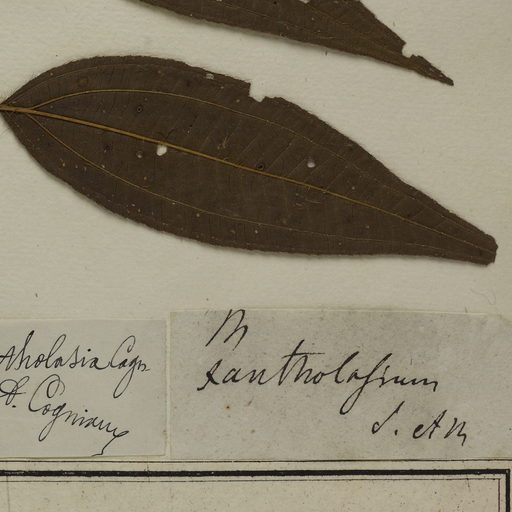 tholasia Cogn
A. Cogniaux
M
xantholasium
S. AM